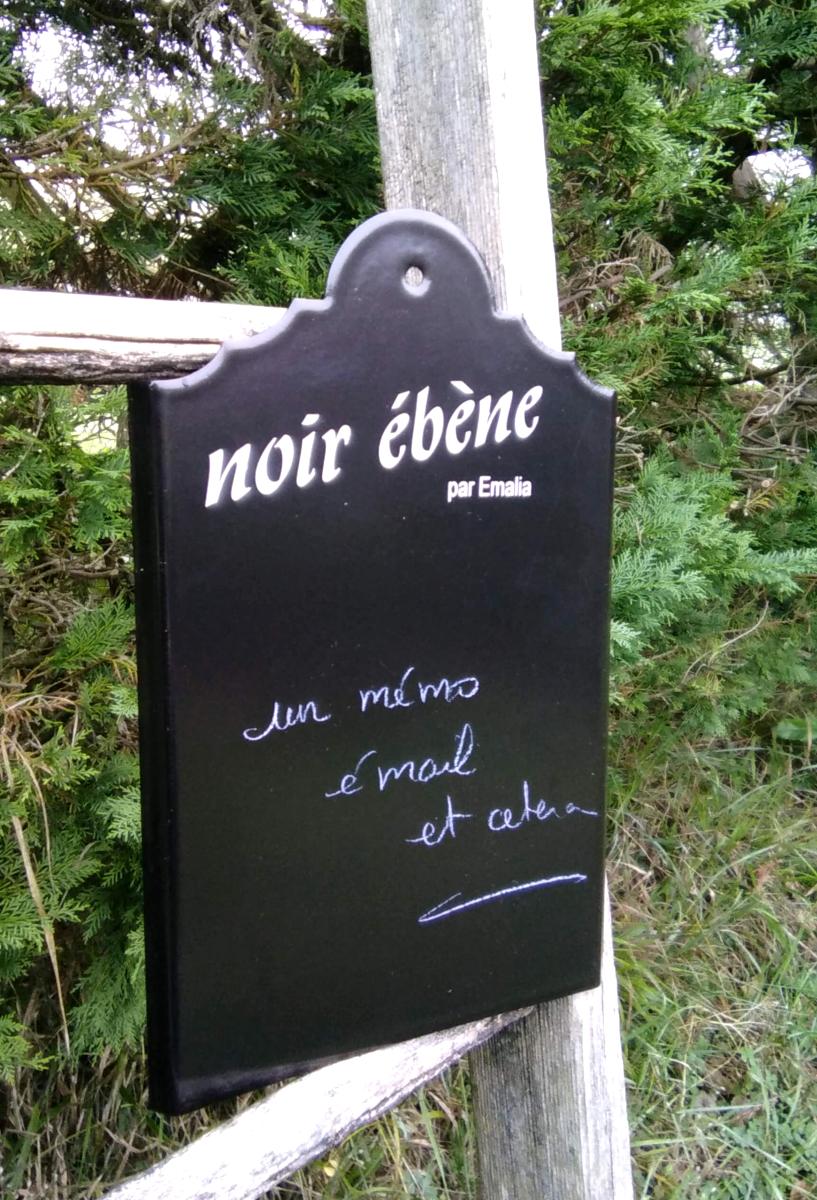 noir ébène
par Emalia
un mémo
émail
et cetera